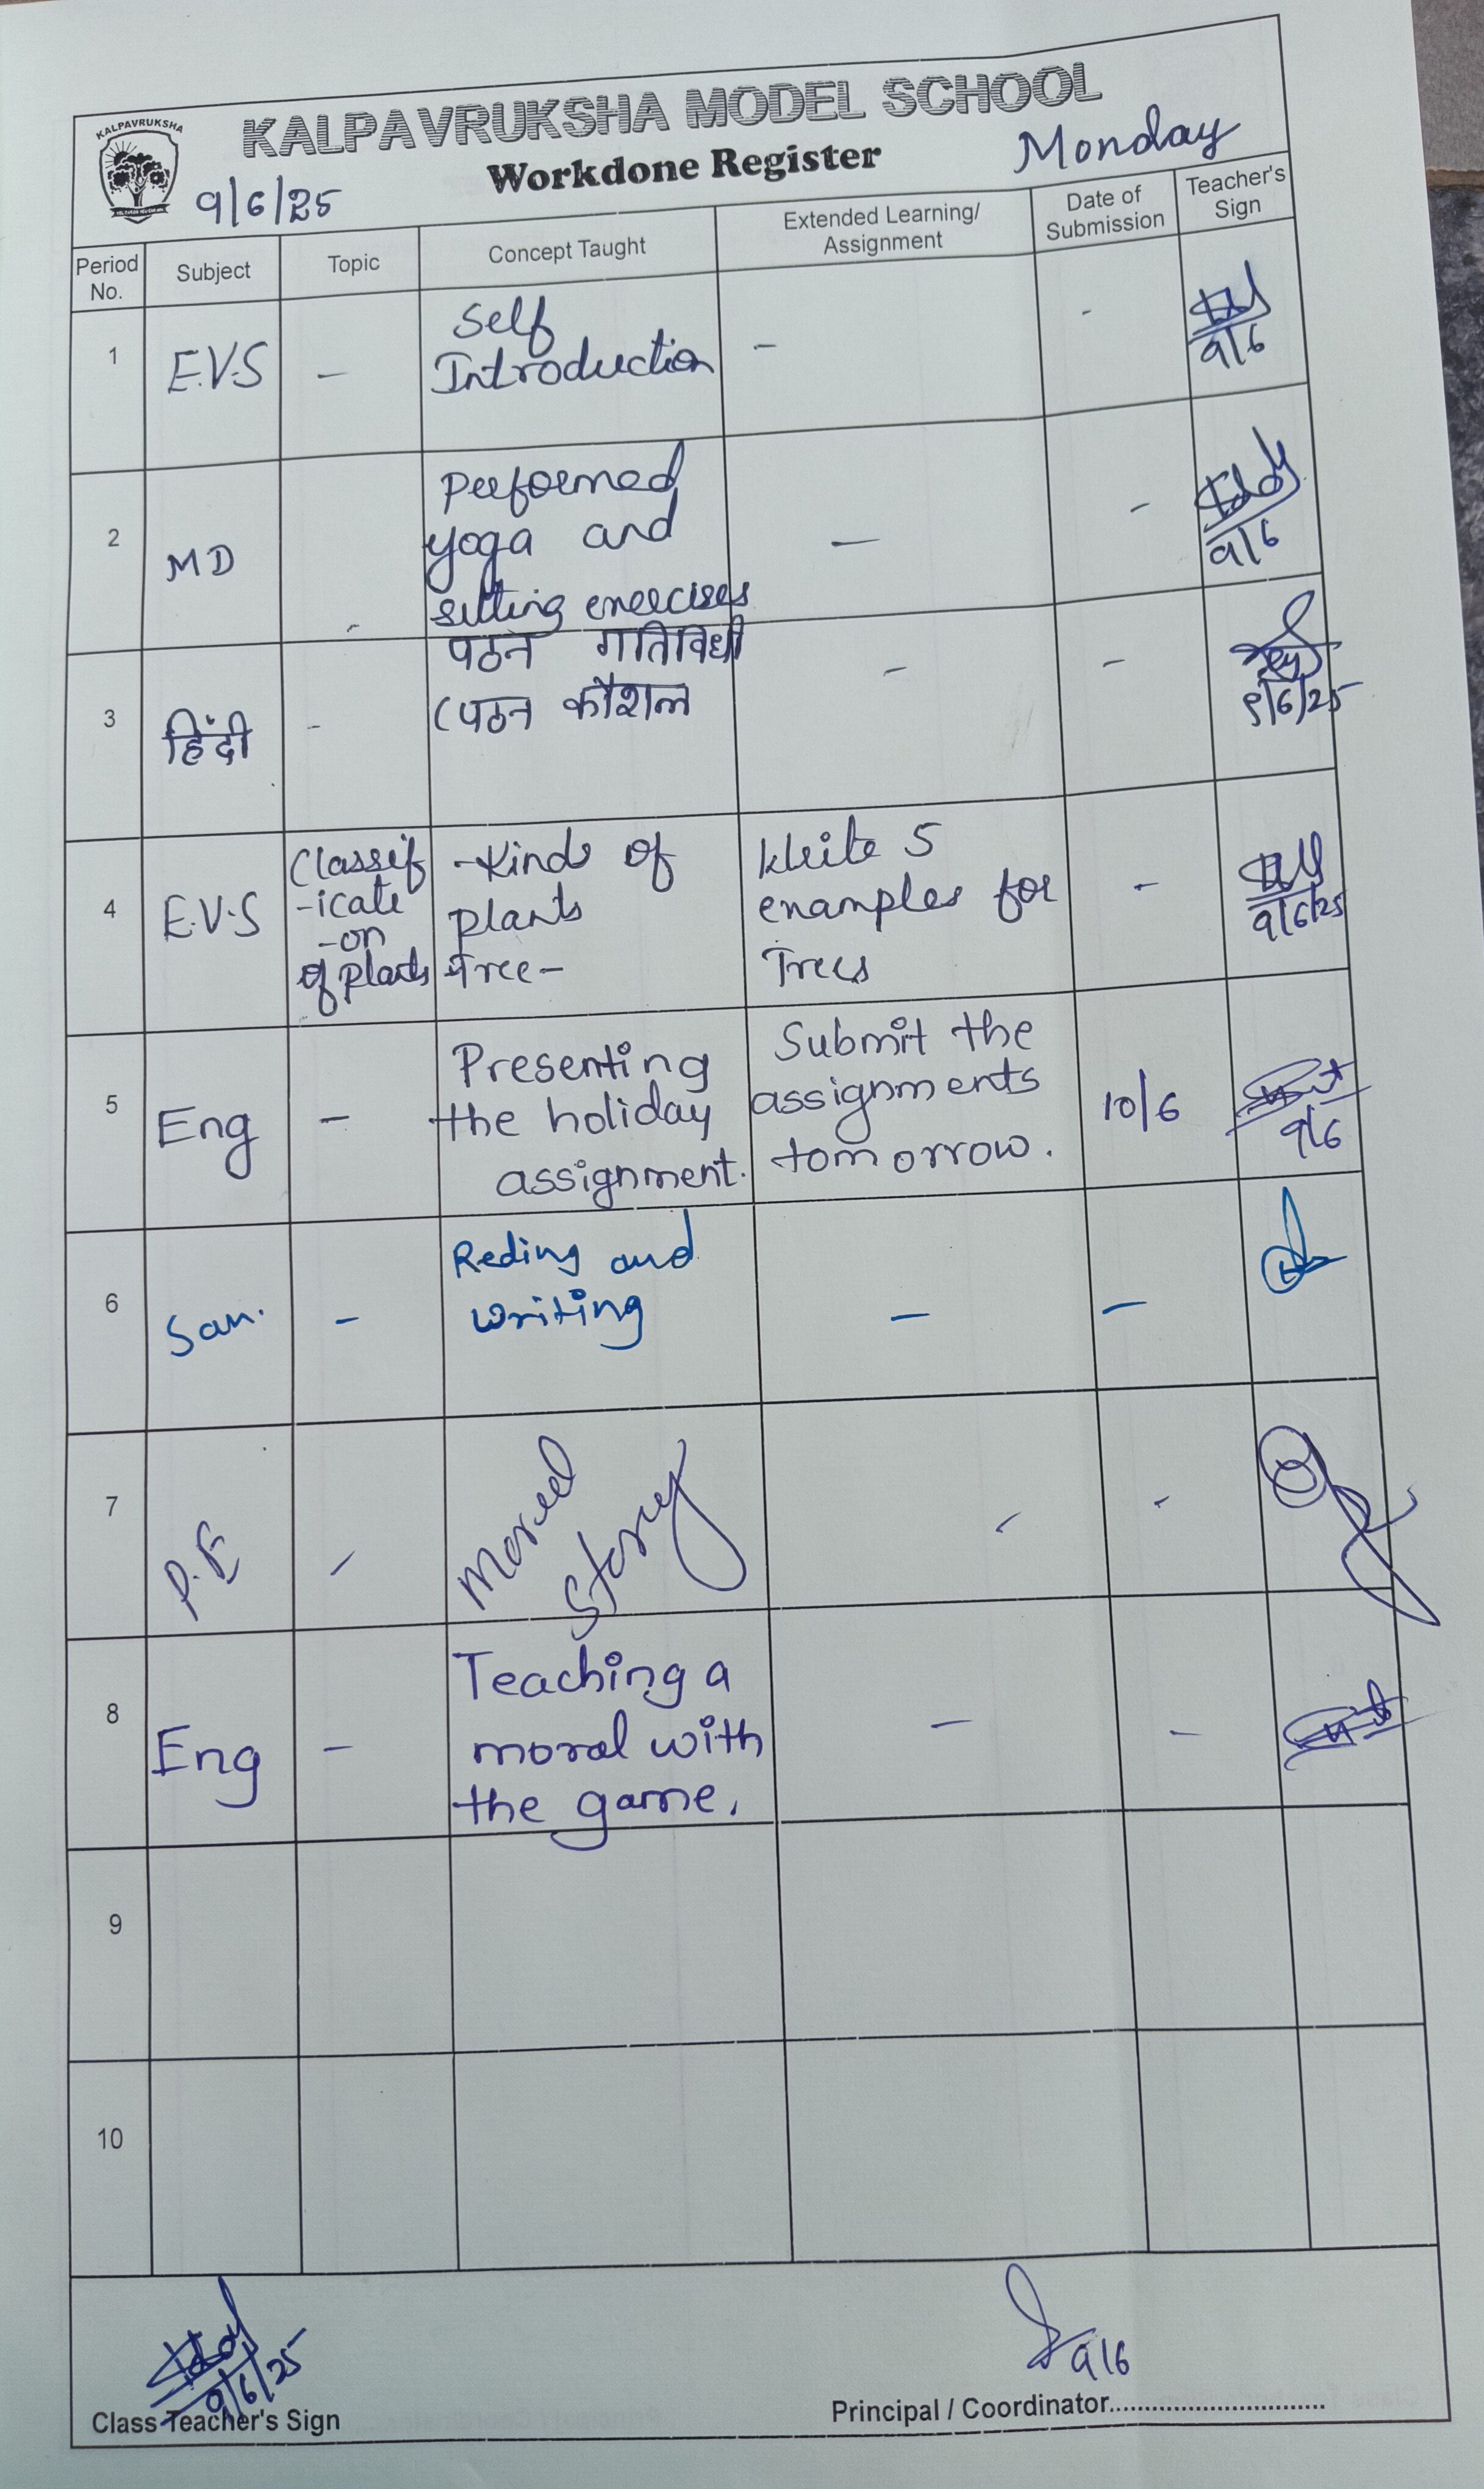 KALPAVRUKSHA
KALPAVRUKSHA MODEL SCHOOL
Workdone Register
9/6/25
Monday
Period No.
Subject
Topic
Concept Taught
Extended Learning/
Assignment
Date of
Submission
Teacher's
Sign
1
E.V.S
-
Self
Introduction
-
-
9/6
2
MD
-
Performed
yoga and
sitting exercises
-
-
9/6
3
हिंदी
-
पठन गतिविधी
(पठन कौशल
-
-
९/6/25
4
E.V.S
Classif
-icate
-on
of plants
-Kinds of
plants
Tree-
Write 5
examples for
Trees
-
9/6/25
5
Eng
-
Presenting
the holiday
assignment.
Submit the
assignments
tomorrow.
10/6
9/6
6
San.
-
Reding and
writing
-
-
7
P.E
-
Moral
Story
-
-
8
Eng
-
Teaching a
moral with
the game.
-
-
9
10
9/6/25
Class Teacher's Sign
9/6
Principal / Coordinator..............................